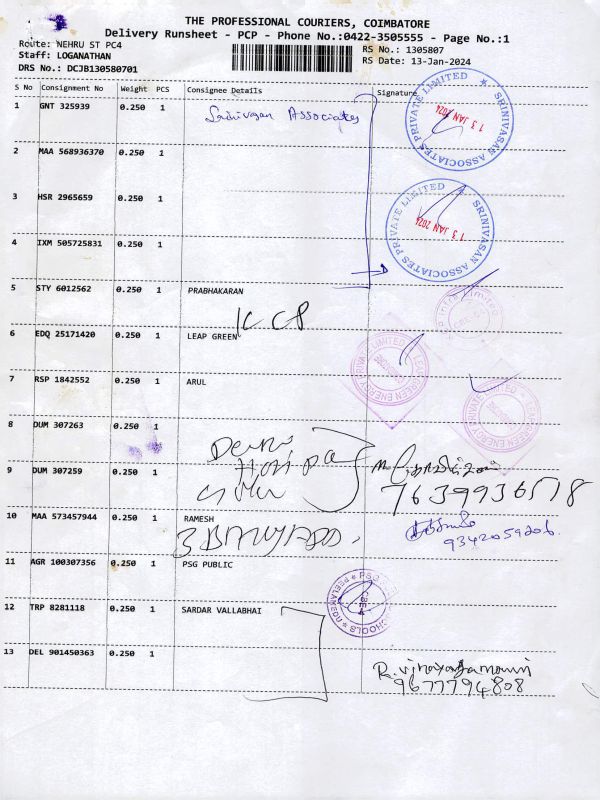 THE PROFESSIONAL COURIERS, COIMBATORE
Delivery Runsheet - PCP - Phone No.:0422-3505555 - Page No.:1
Route: NEHRU ST PC4
RS No.: 1305807
Staff: LOGANATHAN
RS Date: 13-Jan-2024
DRS No.: DCJB130580701
S No Consignment No Weight PCS Consignee Details Signature
1 GNT 325939 0.250 1 Srinivasan Associates
SRINIVASAN ASSOCIATES PRIVATE LIMITED
13 JAN 2024
2 MAA 568936370 0.250 1
3 HSR 2965659 0.250 1
SRINIVASAN ASSOCIATES PRIVATE LIMITED
13 JAN 2024
4 IXM 505725831 0.250 1
5 STY 6012562 0.250 1 PRABHAKARAN
KCP
6 EDQ 25171420 0.250 1 LEAP GREEN
LEAP GREEN ENERGY PRIVATE LIMITED
7 RSP 1842552 0.250 1 ARUL
LEAP GREEN ENERGY PRIVATE LIMITED
8 DUM 307263 0.250 1
9 DUM 307259 0.250 1
7639936518
10 MAA 573457944 0.250 1 RAMESH
9342059206
11 AGR 100307356 0.250 1 PSG PUBLIC
PSG SCHOOLS PEELAMEDU
12 TRP 8281118 0.250 1 SARDAR VALLABHAI
13 DEL 901450363 0.250 1
9677794808